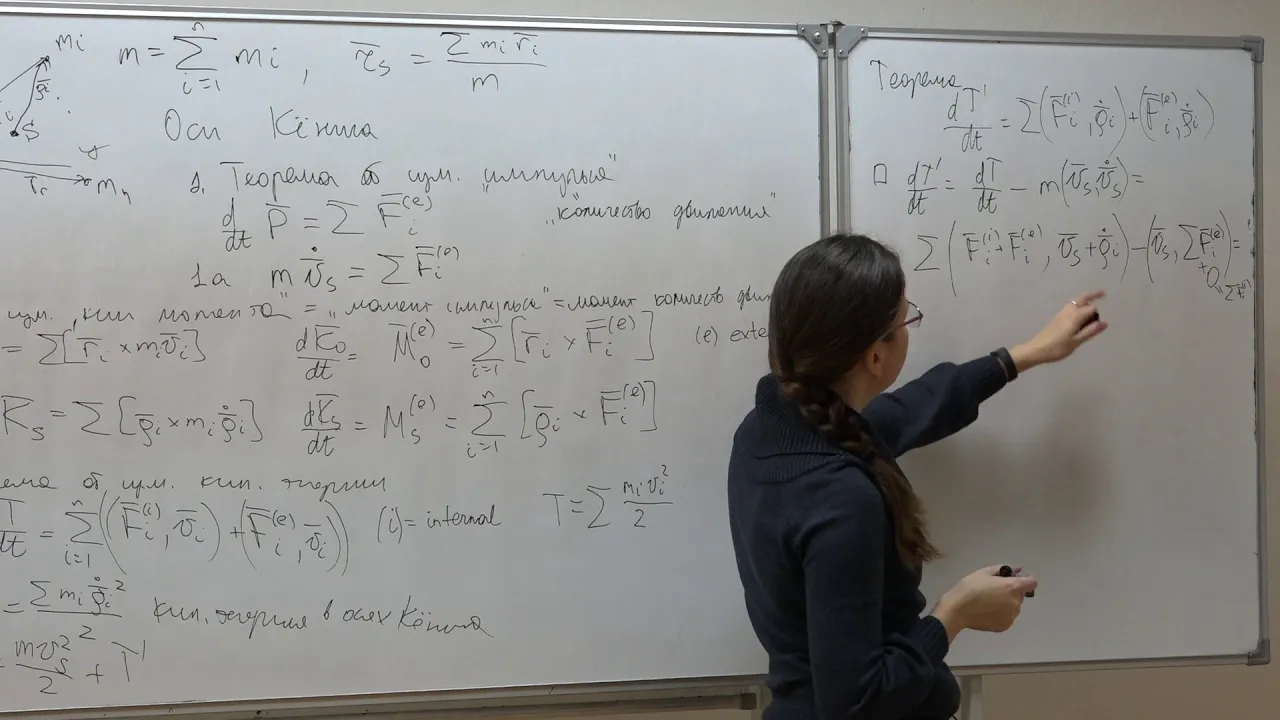 mᵢ
ρ̄ᵢ
S
r̄ᵣ mₙ
m = Σᵢ₌₁ⁿ mᵢ , r̄ₛ = Σ mᵢ r̄ᵢ / m
Оси Кёнига
1. Теорема об изм. "импульса"
d/dt P̄ = Σ F̄ᵢ⁽ᵉ⁾ "количество движения"
1a m v̄̇ₛ = Σ F̄ᵢ⁽ᵉ⁾
изм. "кин момента" = "момент импульса" = момент количеств
= Σ[r̄ᵢ × mᵢv̄ᵢ] dK̄₀/dt = M̄₀⁽ᵉ⁾ = Σᵢ₌₁ⁿ [r̄ᵢ × F̄ᵢ⁽ᵉ⁾] (e) exte
K̄ₛ = Σ [ρ̄ᵢ × mᵢ ρ̄̇ᵢ] dK̄ₛ/dt = M̄ₛ⁽ᵉ⁾ = Σᵢ₌₁ⁿ [ρ̄ᵢ × F̄ᵢ⁽ᵉ⁾]
ема об изм. кин. энергии
T/dt = Σᵢ₌₁ⁿ ((F̄ᵢ⁽ⁱ⁾, v̄ᵢ) + (F̄ᵢ⁽ᵉ⁾, v̄ᵢ)) (i) = internal T = Σ mᵢvᵢ²/2
= Σ mᵢ ρ̄̇ᵢ² / 2 кин. энергия в осях Кёнига
= mvₛ²/2 + T'
Теорема
dT'/dt = Σ(F̄ᵢ⁽ⁱ⁾, ρ̄̇ᵢ) + (F̄ᵢ⁽ᵉ⁾, ρ̄̇ᵢ)
□ dT'/dt = dT/dt − m(v̄ₛ, v̄̇ₛ) =
Σ(F̄ᵢ⁽ⁱ⁾ + F̄ᵢ⁽ᵉ⁾, v̄ₛ + ρ̄̇ᵢ) − (v̄ₛ, Σ F̄ᵢ⁽ᵉ⁾) =
+ 0
" Σ F̄ᵢ⁽ⁱ⁾